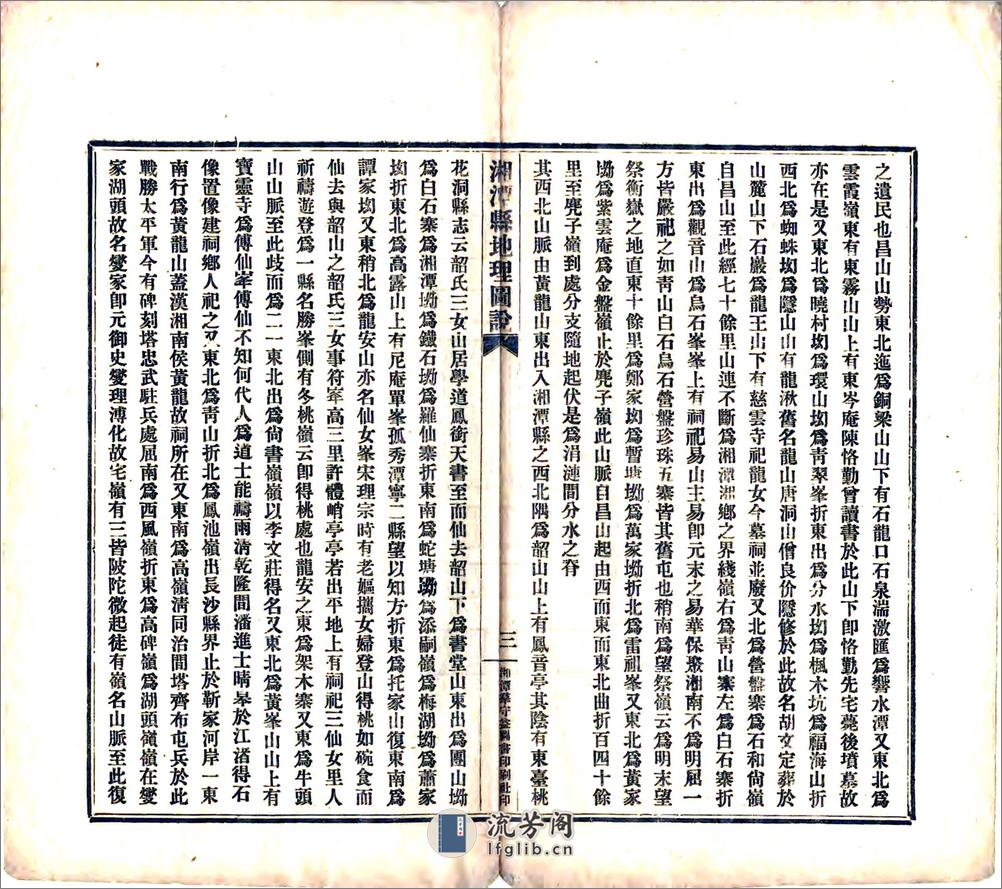 之遺民也昌山山勢東北迤爲銅梁山山下有石龍口石泉湍激匯爲響水潭又東北爲
雲霞嶺東有東霧山山上有東岑庵陳恪勤曾讀書於此山下卽恪勤先宅薨後墳墓故
亦在是又東北爲曉村坳爲環山坳爲青翠峯折東出爲分水坳爲楓木坑爲福海山折
西北爲蜘蛛坳爲隱山山有龍湫舊名龍山唐洞山僧良价隱修於此故名胡文定葬於
山麓山下石巖爲龍王山下有慈雲寺祀龍女今墓祠並廢又北爲營盤寨爲石和尙嶺
自昌山至此經七十餘里山連不斷爲湘潭湘鄉之界綫嶺右爲青山寨左爲白石寨折
東出爲觀音山爲烏石峯峯上有祠祀易山主易卽元末之易華保聚湘南不爲明屈一
方皆嚴祀之如靑山白石烏石營盤珍珠五寨皆其舊屯也稍南爲望祭嶺云爲明末望
祭衡嶽之地直東十餘里爲鄭家坳爲暫塘坳爲萬家坳折北爲雷祖峯又東北爲黃家
坳爲紫雲庵爲金盤嶺止於麂子嶺此山脈自昌山起由西而東而東北曲折百四十餘
里至麂子嶺到處分支隨地起伏是爲涓漣間分水之脊
其西北山脈由黃龍山東出入湘潭縣之西北隅爲韶山山上有鳳音亭其陰有東臺桃
湘潭縣地理圖說
三
湘潭華守益圖書印刷社印
花洞縣志云韶氏三女山居學道鳳銜天書至而仙去韶山下爲書堂山東出爲團山坳
爲白石寨爲湘潭坳爲鐵石坳爲羅仙寨折東南爲蛇塘坳爲添嗣嶺爲梅湖坳爲蕭家
坳折東北爲高露山上有尼庵單峯孤秀潭寧二縣望以知方折東爲托家山復東南爲
譚家坳又東稍北爲龍安山亦名仙女峯宋理宗時有老嫗攜女婦登山得桃如碗食而
仙去與韶山之韶氏三女事符峯高三里許體峭亭亭若出平地上有祠祀三仙女里人
祈禱遊登爲一縣名勝峯側有冬桃嶺云卽得桃處也龍安之東爲架木寨又東爲牛頭
山山脈至此歧而爲二一東北出爲尙書嶺嶺以李文莊得名又東北爲黃峯山山上有
寶靈寺爲傅仙峯傅仙不知何代人爲道士能禱雨淸乾隆間潘進士晴皋於江渚得石
像置像建祠鄉人祀之又東北爲靑山折北爲鳳池嶺出長沙縣界止於靳家河岸一東
南行爲黃龍山蓋漢湘南侯黃龍故祠所在又東南爲高嶺淸同治間塔齊布屯兵於此
戰勝太平軍今有碑刻塔忠武駐兵處屈南爲西風嶺折東爲高碑嶺爲湖頭嶺嶺在夔
家湖頭故名夔家卽元御史夔理溥化故宅嶺有三皆陂陀微起徒有嶺名山脈至此復
流芳阁
lfglib.cn